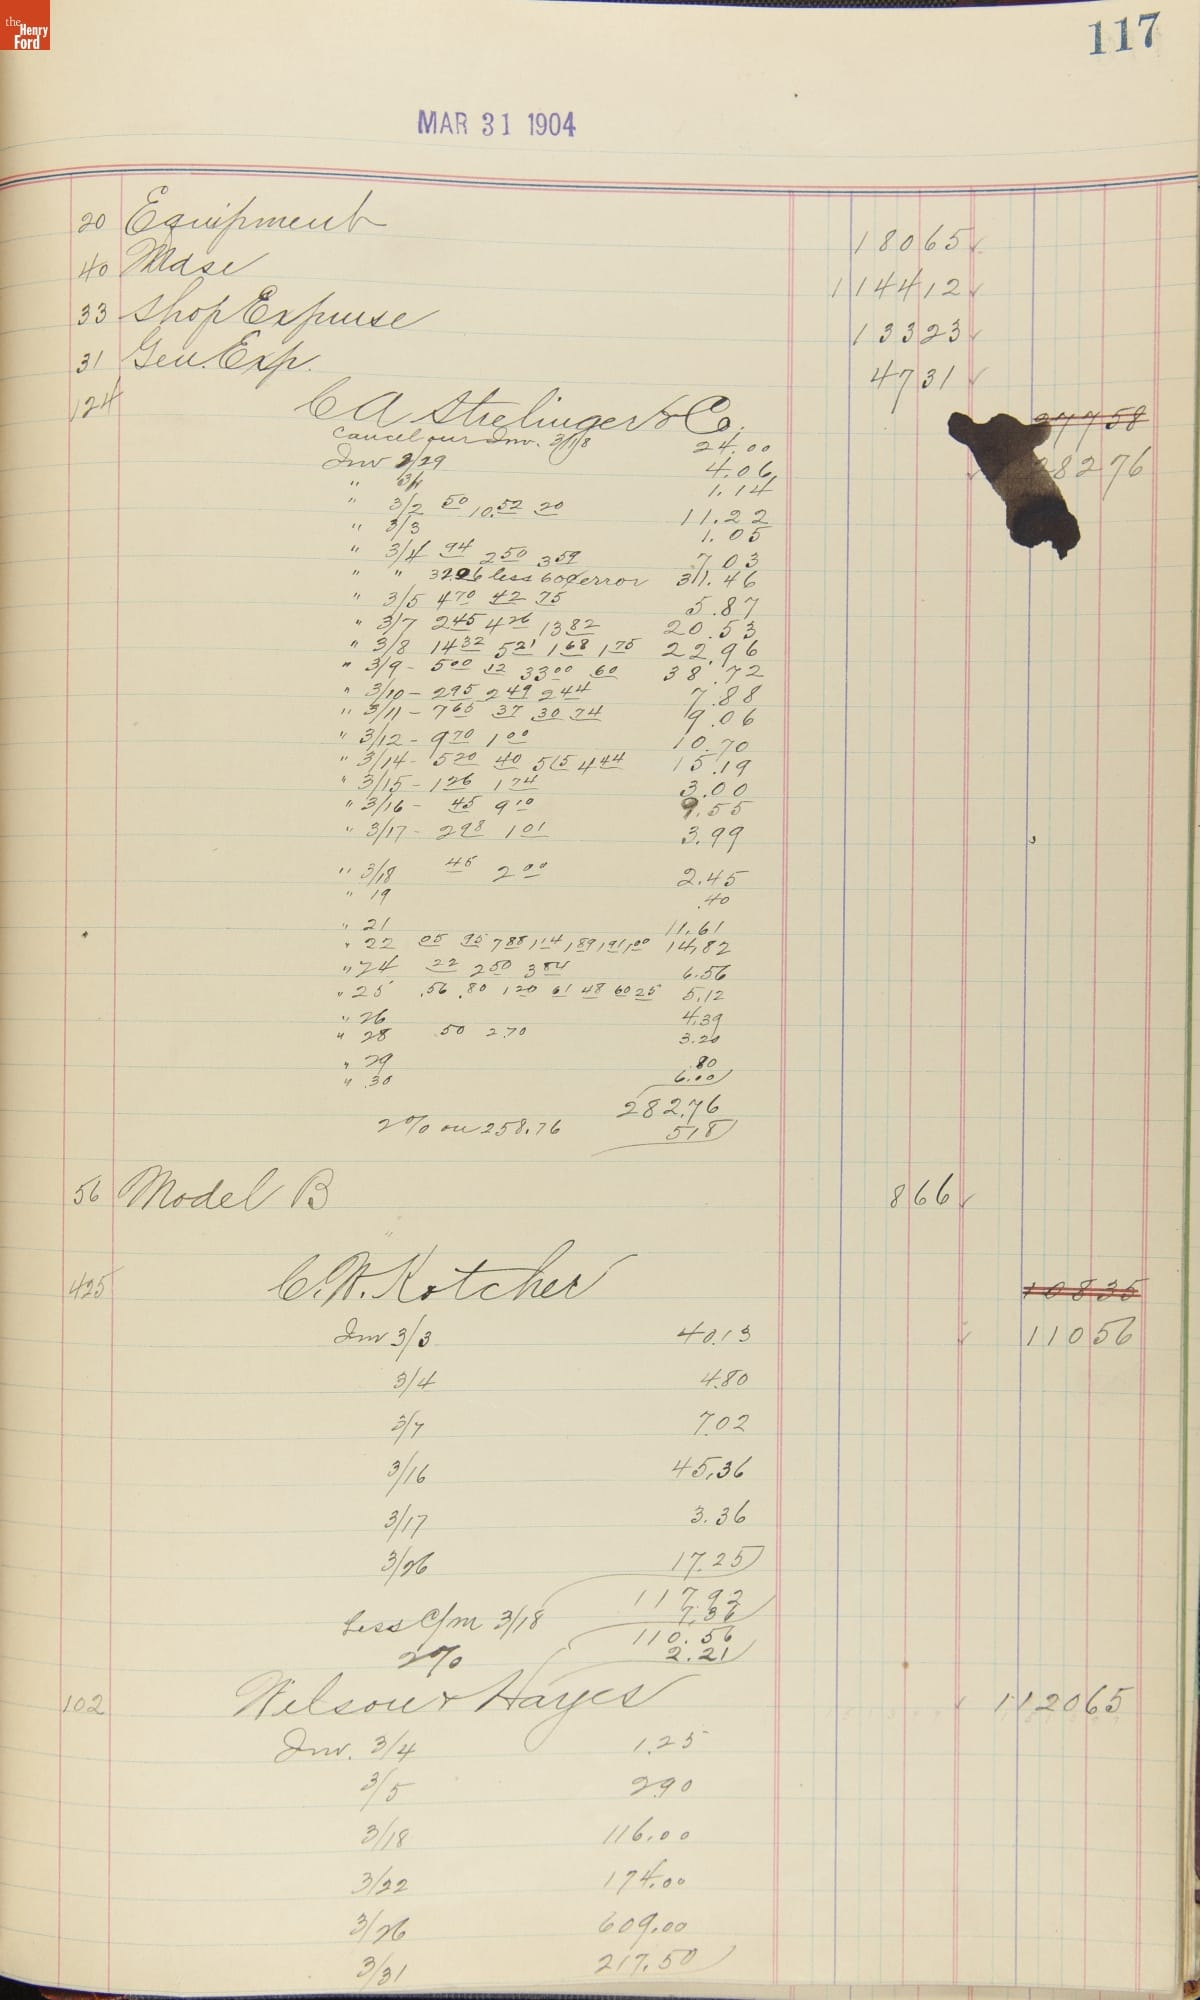 the Henry Ford
117
MAR 31 1904
20 Equipment 180 65 ✓
40 Mdse 1144 12 ✓
33 Shop Expense 133 23 ✓
31 Gen. Exp. 47 31 ✓
124 C A Strelinger & Co. 277 58
Cancel our Inv. 3/1/8 24.00
✓ 282 76
Inv 2/29 4.06
" 3/1 1.14
" 3/2 50 10.52 20 11.22
" 3/3 1.05
" 3/4 94 250 359 7.03
" " 32.06 less 60¢ error 31.46
" 3/5 470 42 75 5.87
" 3/7 245 426 1382 20.53
" 3/8 1432 521 168 175 22.96
" 3/9 - 500 12 3300 60 38.72
" 3/10 - 295 249 244 7.88
" 3/11 - 765 37 30 74 9.06
" 3/12 - 970 100 10.70
" 3/14 - 520 40 515 444 15.19
" 3/15 - 126 174 3.00
" 3/16 - 45 910 9.55
" 3/17 - 298 101 3.99
" 3/18 45 200 2.45
" 19 .40
" 21 11.61
" 22 05 95 788 114 189 191 100 14.82
" 24 22 250 384 6.56
" 25 .56 .80 120 61 48 60 25 5.12
" 26 4.39
" 28 50 2.70 3.20
" 29 .80
" 30 6.00
282.76
2% on 258.76 5.18
56 Model B 8 66 ✓
425 C. W. Kotcher 108 35
Inv 3/3 40.13 ✓ 110 56
3/4 4.80
3/7 7.02
3/16 45.36
3/17 3.36
3/26 17.25
117.92
Less C/m 3/18 7.36
110.56
2% 2.21
102 Wilson & Hayes ✓ 1120 65
Inv. 3/4 1.25
3/5 2.90
3/18 116.00
3/22 174.00
3/26 609.00
3/31 217.50